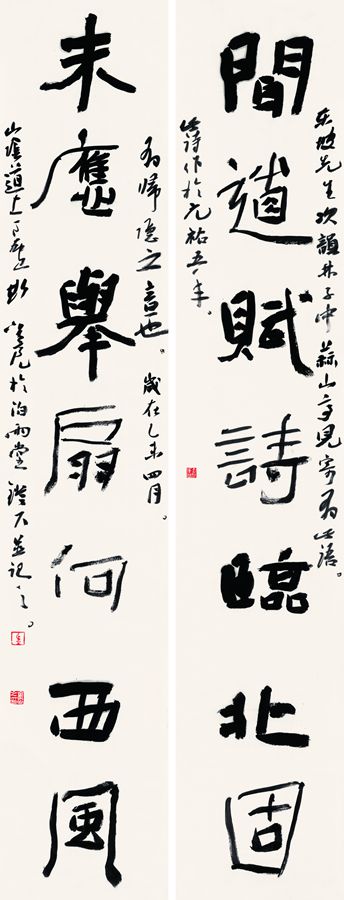 聞道賦詩臨北固
東坡先生次韻林子中蒜山亭見寄有此語。
此詩作於元祐五年。
未應舉扇何西風
有歸隱之意也。歲在乙未四月。
山崖道上 於泊雨堂鐙下並記之。